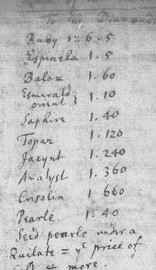 to the Diamond
Ruby is 6 . 5
Espinela 1 . 5
Balax 1 . 60
Esmerald
orient } 1 . 10
Saphire 1 . 40
Topaz 1 . 120
Jacynt 1 . 240
Amatyst 1 . 360
Crisolin 1 660
Pearle 1 . 40
Seed pearls under a
Quilate = ye price of
& more.